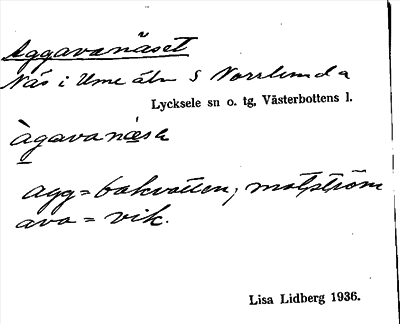 Aggavanäset
Näs i Ume älv S Norrlunda
Lycksele sn o. tg, Västerbottens l.
àgavanä̀se
agg = bakvatten, motström
ava = vik.
Lisa Lidberg 1936.